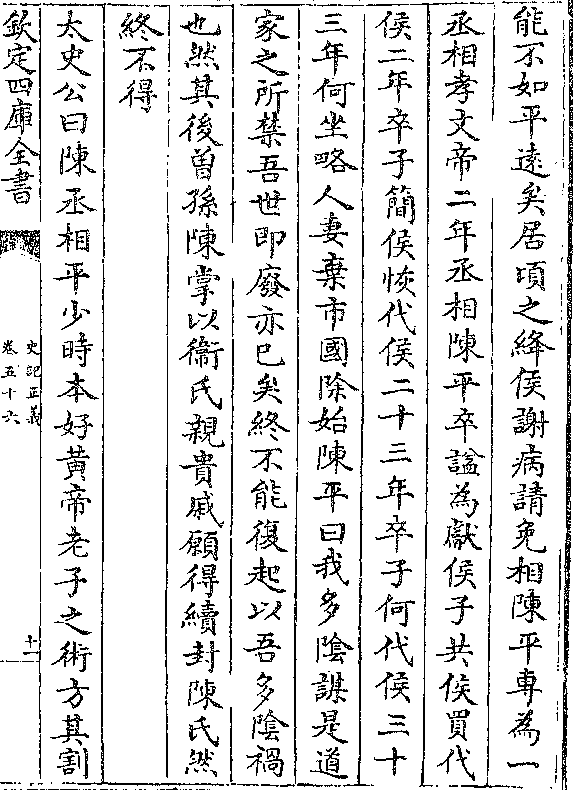 能不如平遠矣居頃之絳侯謝病請免相陳平專為一
丞相孝文帝二年丞相陳平卒諡為獻侯子共侯買代
侯二年卒子簡侯恢代侯二十三年卒子何代侯三十
三年何坐略人妻棄市國除始陳平曰我多陰謀是道
家之所禁吾世即廢亦已矣終不能復起以吾多陰禍
也然其後曽孫陳掌以衞氏親貴戚願得續封陳氏然
終不得
太史公曰陳丞相平少時本好黄帝老子之術方其割
欽定四庫全書
史記正義
卷五十六
十一